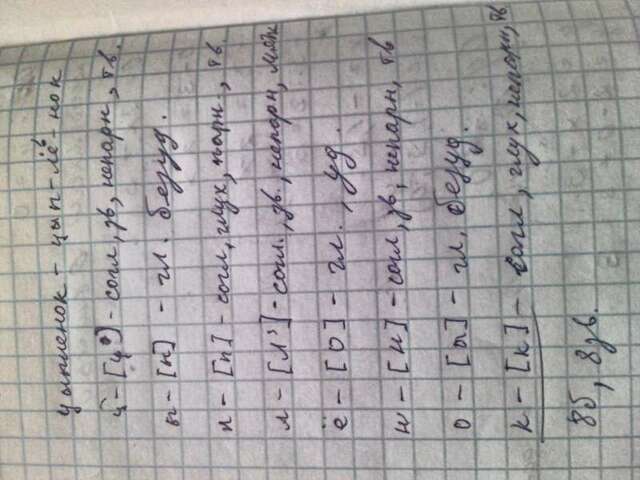 цыпленок - цып-лё-нок
ц - [ц] - согл, зв, непарн, тв.
ы - [ы] - гл. безуд.
п - [п] - согл, глух, парн, тв.
л - [л'] - согл., зв., непарн, мягк
ё - [о] - гл., уд.
н - [н] - согл, зв, непарн, тв
о - [а] - гл. безуд.
к - [к] - согл, глух, непарн, тв
8б, 8зв.